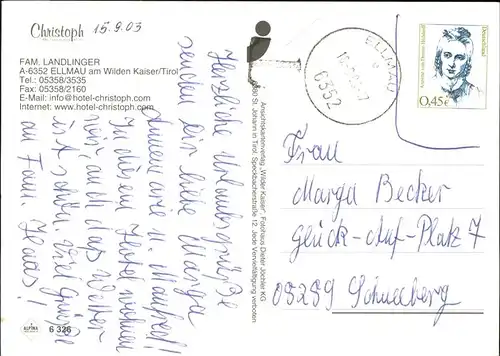 Christoph
15.9.03
FAM. LANDLINGER
A-6352 ELLMAU am Wilden Kaiser/Tirol
Tel.: 05358/3535
Fax: 05358/2160
E-Mail: info@hotel-christoph.com
Internet: www.hotel-christoph.com
Herzliche Urlaubsgrüße
senden dir liebe Marga
Annemarie u. Manfred!
In diesem Hotel wohnen
wir, auch das Wetter
ist schön. Viel Grüße
an Fam. Haas!
ALPINA
6 326
Ansichtskartenverlag „Wilder Kaiser", Fotohaus Dieter Jöchler KG
6380 St. Johann in Tirol, Speckbacherstraße 12, Jede Vervielfältigung verboten
ELLMAU
6352
Deutschland
0,45€
Frau
Marga Becker
Glück-Auf-Platz 7
08289 Schneeberg